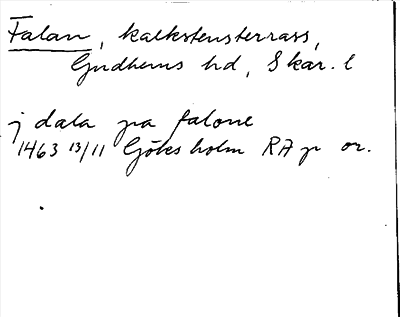 Falan, kalkstensterrass,
Gudhems hd, Skar. l
j dala pa falone
1463 13/11 Göksholm RA p or.